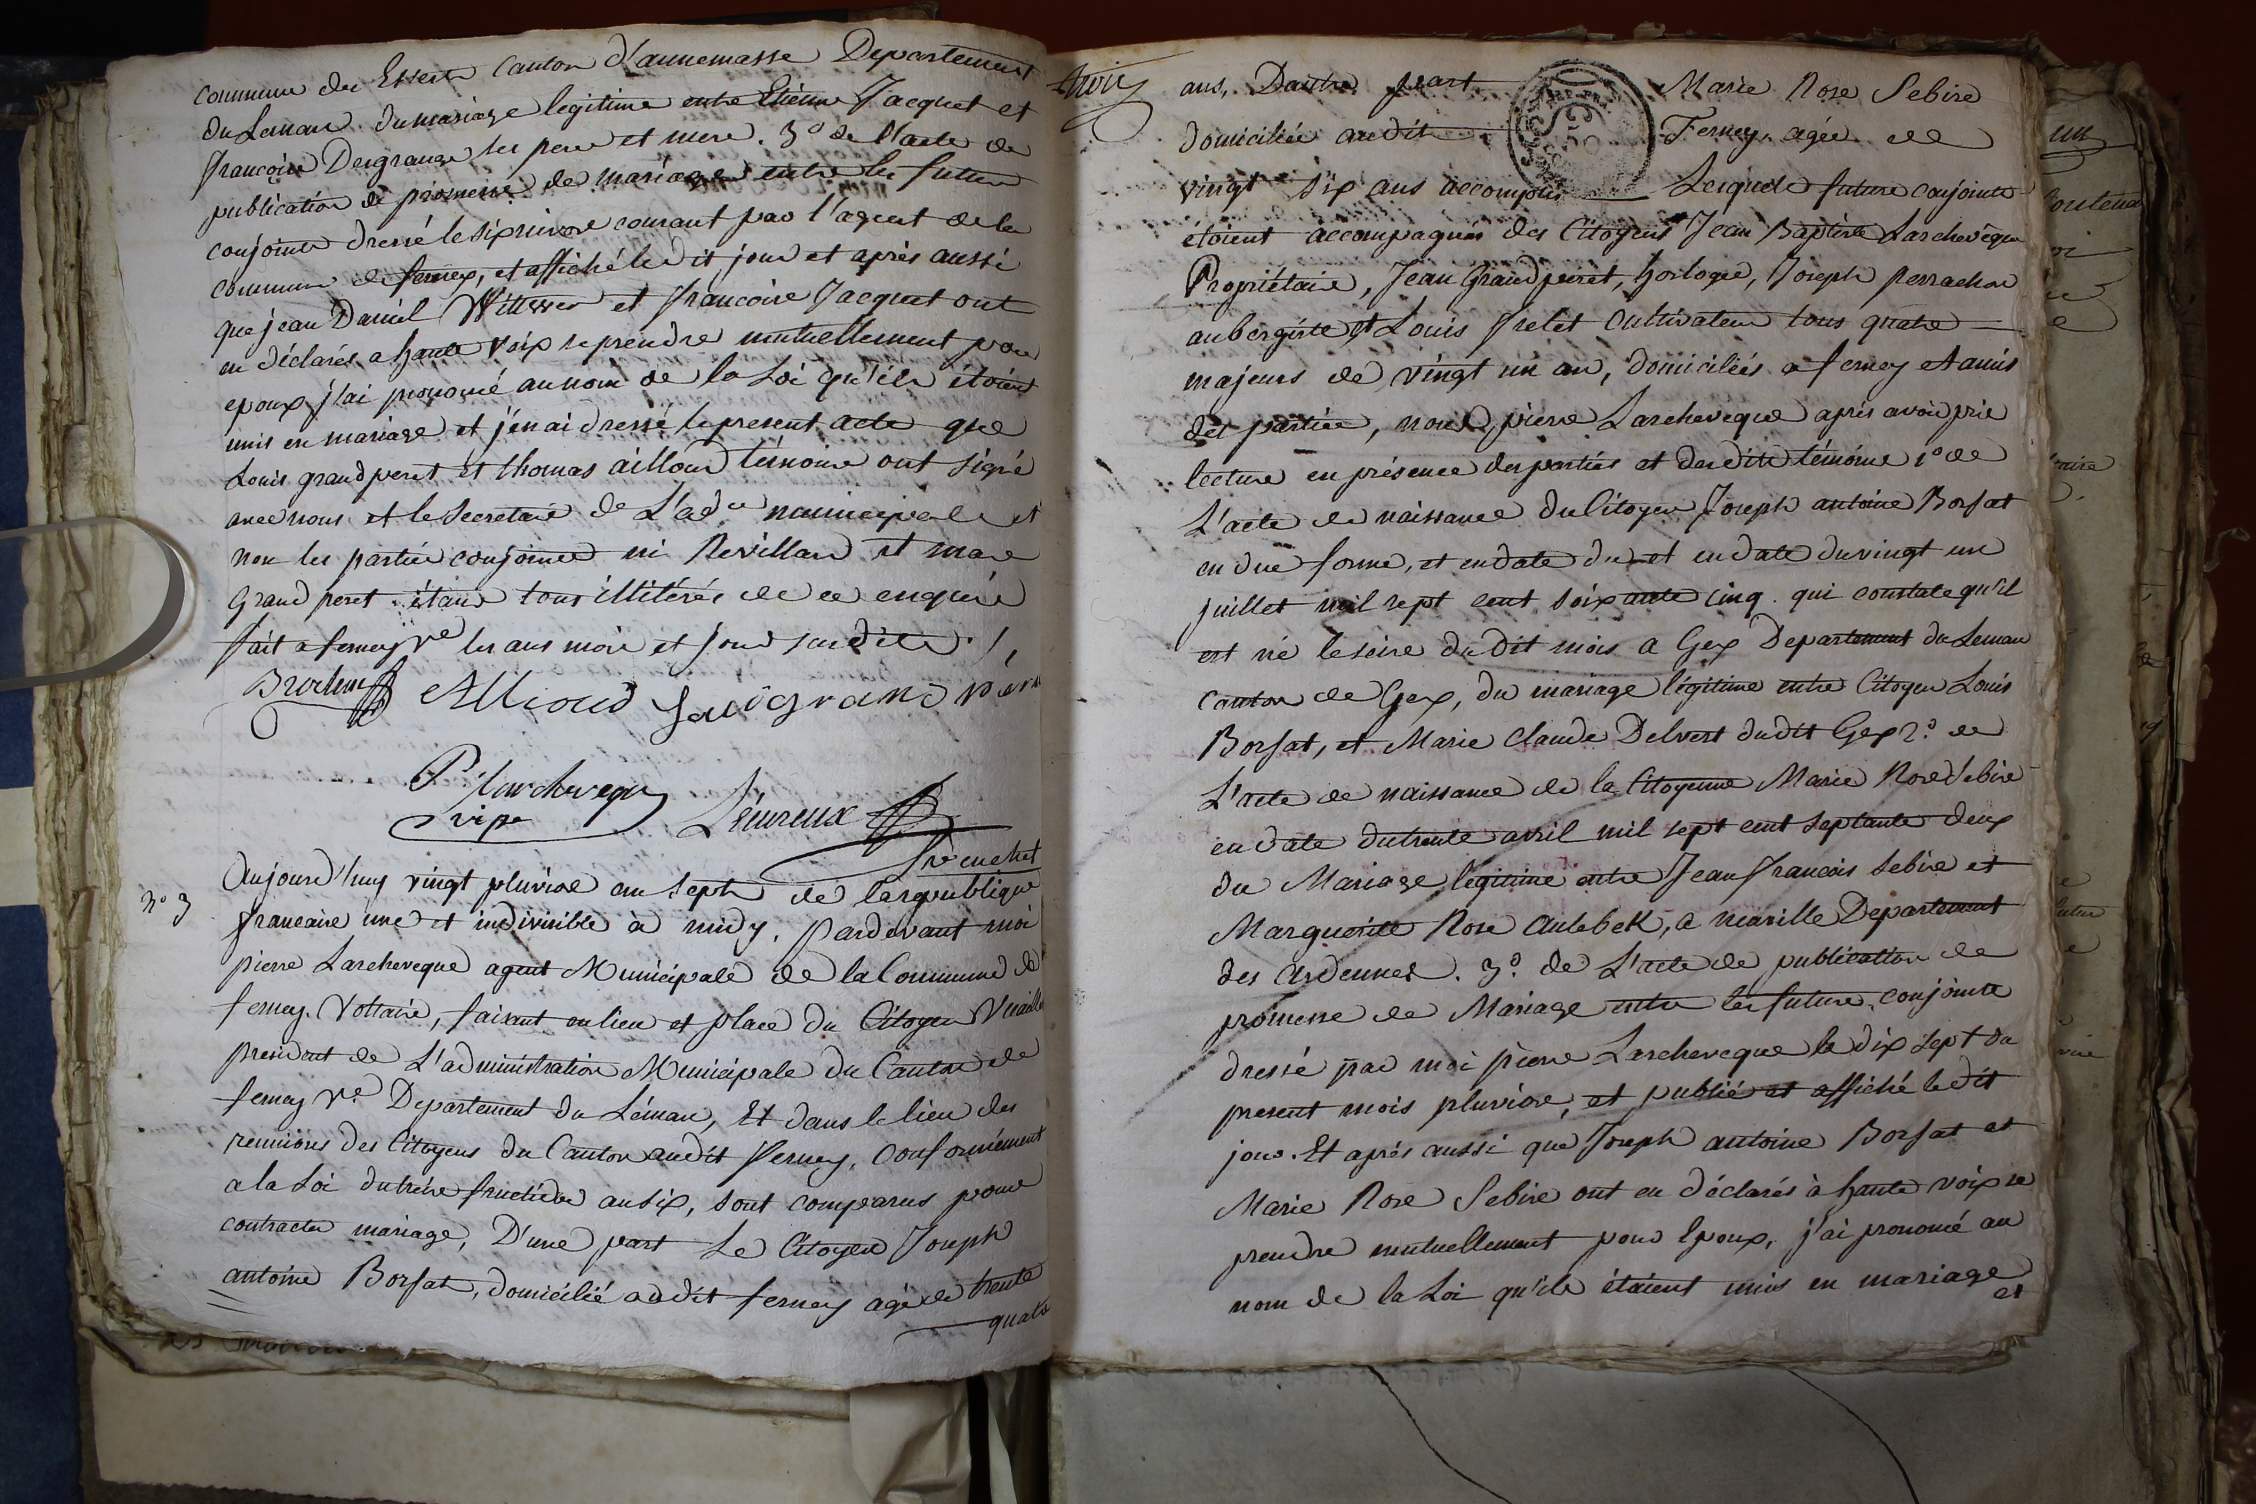 commune de Essert canton d'annemasse Departement
du Leman du mariage legitime entre Etienne Jacquet et
francoise Desgrange les pere et mere. 3° de l'acte de
publication de promesse de mariage entre les futurs
conjoints dressé le six nivose courant par l'agent de la
commune de fernex, et affiché le dit jour et après aussi
que jean Daniel Wittwer et francoise Jacquet ont
eu déclarés a haute voix se prendre mutuellement pour
epoux j'ai prononcé au nom de la Loi qu'ils étoient
unis en mariage et j'en ai dressé le present acte que
Louis grandperet et thomas ailloud témoins ont signé
avec nous et le secretaire de L'ad.on municipale et
non les parties conjointes ni Revillard et marc
Grand peret étant tous illitérés de ce enquis
fait a ferney V.e les ans mois et jour susdits ./.
Allioud Louis Grand péret
P Larcheveque
Lheureux
N° 3
Aujourd'huy vingt pluviose an sept de la republique
francaise une et indivisible à midy. Pardevant moi
pierre Larcheveque agent Municipale de la Commune de
ferney Voltaire, faisant au lieu et place du Citoyen
president de L'administration Municipale du Canton de
ferney V.e Departement du Léman, Et dans le lieu des
reunions des Citoyens du Canton audit ferney, conformément
a la Loi du treize fructidor an six, sont comparus pour
contracter mariage, D'une part Le Citoyen Joseph
antoine Borsat, domicilié au dit ferney agé de trente
quatre
ans, Dautre part Marie Rose Sebire
domiciliée audit Ferney, agée de
vingt six ans accomplis Lesquels futurs conjoints
étoient accompagnés des Citoyens Jean Baptiste Larcheveque
Propriétaire, Jean Grandperret, horloger, Joseph perrachon
aubergiste et Louis fretet cultivateur tous quatre
majeurs de vingt un an, domiciliés a ferney et amis
des parties, nous, pierre Larcheveque après avoir prie
lecture en présence des parties et desdits témoins 1° de
L'acte de naissance du Citoyen Joseph antoine Borsat
en due forme, et en date du et en date du vingt un
juillet mil sept cent soixante cinq qui constate qu'il
est né le seize du dit mois a Gex Departement du Leman
canton de Gex, du mariage légitime entre Citoyen Louis
Borsat, et Marie Claude Delvert dudit Gex 2°. de
L'acte de naissance de la Citoyenne Marie Rose Sebire
en date du trente avril mil sept cent septante deux
du Mariage legitime entre Jean Francois Sebire et
Marguerite Rose Aulebek, a marville Departement
des ardennes. 3°. de L'acte de publication de
promesse de Mariage entre les futurs conjoints
dressé par moi pierre Larcheveque le dix sept du
present mois pluviose, et publié et affiché le dit
jour. Et après aussi que Joseph antoine Borsat et
Marie Rose Sebire ont eu déclarés à haute voix se
prendre mutuellement pour Epoux, j'ai prononcé au
nom de la Loi qu'ils étaient unis en mariage
et